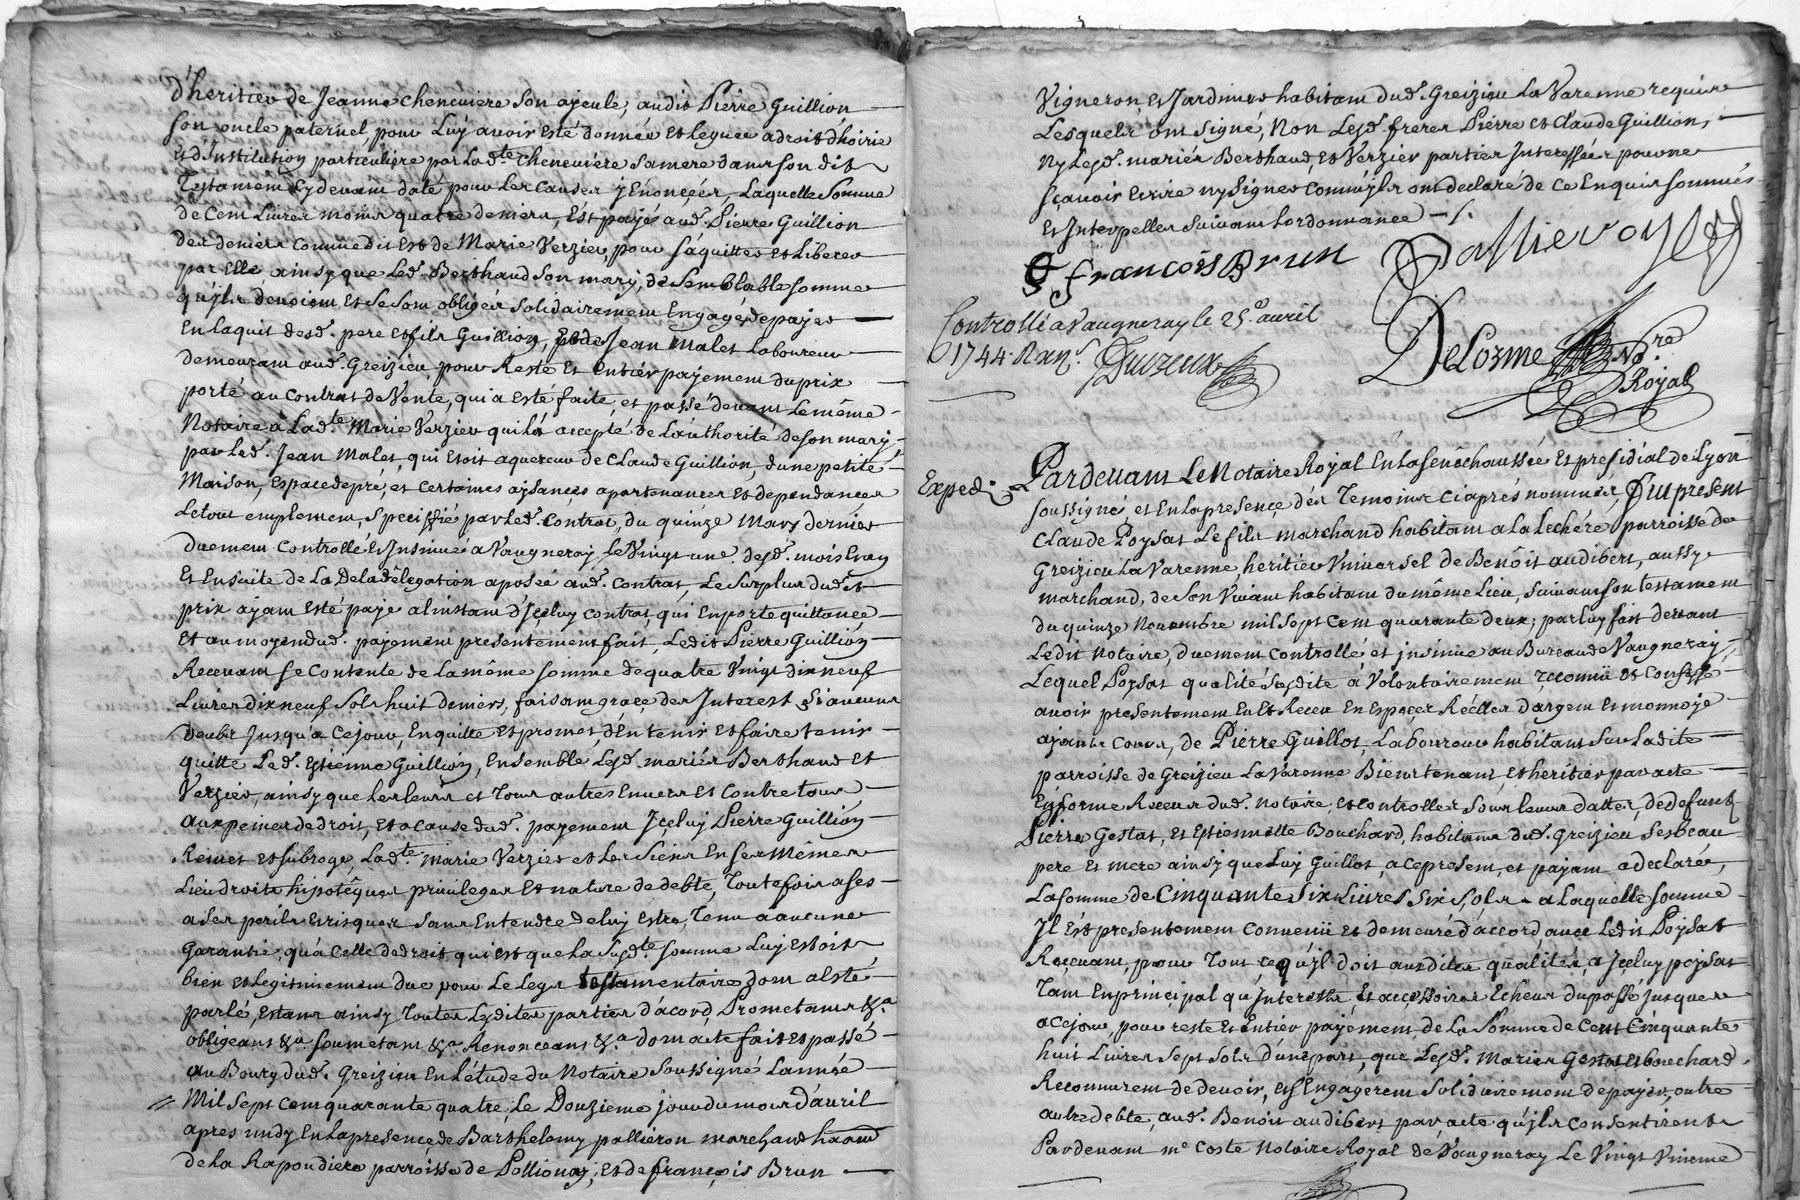 d'heritier de Jeanne cheneviere Son ayeule, audit Pierre Guillion
son oncle paternel, pour Luy avoir esté donnée et leguée a droit d'hoirie
et d'Institution particuliere par Lad.te Cheneviere Sa mere dans son dit
Testament cy devant daté pour Les causes y Enoncées, Laquelle Somme
de Cent Livres moins quatre deniers, Est payée aud. Pierre Guillion
des deniers comme dit Est de Marie Verzier, pour Saquitter et Liberer
par Elle ainsy que Led. Berthaud Son mary, de Semblable somme
qu'ils devoient et Se Sont obligés Solidairement Engagés de payer
En laquit desd. pere et fils Guillion, et de Jean Malet Laboureur
demeurant aud. Greizieu pour Reste Et Entier payement du prix
porté au Contrat de Vente, qui a Esté faite, et passé devant Le même
Notaire à Lad.te Marie Verzier qui l'a accepté de L'authorité de son mary
par Led. Jean Malet, qui Etoit aquereur de Claude Guillion, d'une petite
Maison, Espace de pré, et Certaines aysances apartenances Et dependances
Le tout emplement, Speciffié par Led. Contrat, du quinze Mars dernier
duement Controllé et Insinué a Vaugneray, Le Vingt une desd. mois Et an
Et Ensuite de La Deladélegation aposée aud. Contrat, Le Surplus dud.t
prix ayant Esté payé a linstant d'Iceluy contrat, qui En porte quittance
Et au moyen dud. payement presentement fait, Ledit Pierre Guillion
Recevant se Contente de La même Somme de quatre Vingt dix neuf
Livres dix neuf Sols huit deniers, faisant grace des Interest Si aucuns
deubs Jusqu'a ce jour, En quitte et promet, d'En tenir et faire tenir
quitte Led. Estienne Guillion, Ensemble Lesd. mariés Berthaud Et
Verzier, ainsy que Les leurs et Tous autres Envers Et Contre tous
aux peines de droit, Et a cause dud. payement Iceluy Pierre Guillion
Remet et Subroge Lad.te Marie Verzier et Les Siens En Ses Mêmes
Lieu droits hipotêques privileges Et nature de debte, Toutefois a ses
a Ses perils Et risques Sans Entendre de luy estre Tenu a aucune
Garantie, qu'a Celle de droit qui est que La Susd.te somme Luy Estoit
bien et Legitimement due pour Le Legs testamentaire dont a Esté
parlé, Estans ainsy Toutes Lesdites parties d'acord, Prometans &.a
obligeans &a. soumetans &a. Renonceans &.a dont acte fait et passé
au Bourg dud. Greizieu En L'étude du Notaire Soussigné Lannée
Mil Sept Cent quarante quatre Le Douzieme jour du mois D'avril
apres midy En la presence de Barthelemy pallieron marchand haant
de la Rapoudiere parroisse de Pollionay, et de francois Brun
Vigneron Et Jardinier habitant dud. Greizieu La Varenne requis
Lesquels ont Signé, Non Lesd. freres Pierre et Claude Guillion,
Ny Lesd. mariés Berthaud, et Verzier parties Interessées pour ne
sçavoir Ecrire ny Signer comm'ils ont declaré de ce Enquis sommés
Et Interpellés Suivant L'ordonnance
francois Brun
Controllé a Vaugneray le 25.e avril
1744.
DeLorme No.re
Royal
Exped.
Pardevant Le Notaire Royal En La Senéchaussée Et presidial de Lyon
soussigné, et En La presence des Temoins Ci aprés nommés, fut present
Claude Poysat Le fils marchand habitant a La Lechére, parroisse de
Greizieu La Varenne, heritier Universel de Benoit audibert, aussy
marchand, de Son Vivant habitant du même Lieu, Suivant Son testament
du quinze Novembre mil Sept Cent quarante deux, par luy fait devant
Ledit Notaire, duement controllé et insinué au Bureau de Vaugneray,
Lequel Poysat qualité Susdite à Volontairement reconnû et Confessé
avoir presentement Eu Et Receu En Especes Réelles d'argent Et monnoye
ayants Cours, de Pierre Guillot, Laboureur habitant Sur Ladite
parroisse de Greizieu La Varenne Bientenant, et heritier par acte
En forme Receus dud. Notaire et controllés Sous leurs dattes, de defunt
Pierre Gostat, et Estiennette Bouchard, habitans dud. Greizieu Ses beau
pere Et mere ainsy que Luy Guillot, a ce present, et payant a declaré,
La Somme de Cinquante Six Livres Six Sols - a Laquelle Somme
Il Est presentement Convenû et demeuré d'accord avec Ledit Poysat
Recevant, pour Tout ce qu'il doit aux dites qualités, a Iceluy poysat
Tant En principal qu'Interests Et accessoires Echeus du passé Jusques
a ce jour, pour reste Et Entier payement de La Somme de Cent Cinquante
huit Livres Sept Sols D'une part, que Lesd. Mariés Gostat et Bouchard
Reconnurent de devoir, Et S'Engagerent Solidairement de payer, outre
autre debte, aud. Benoit audibert par acte qu'ils Consentirent
Pardevant m.e Coste Notaire Royal de Vaugneray Le Vingt Unieme